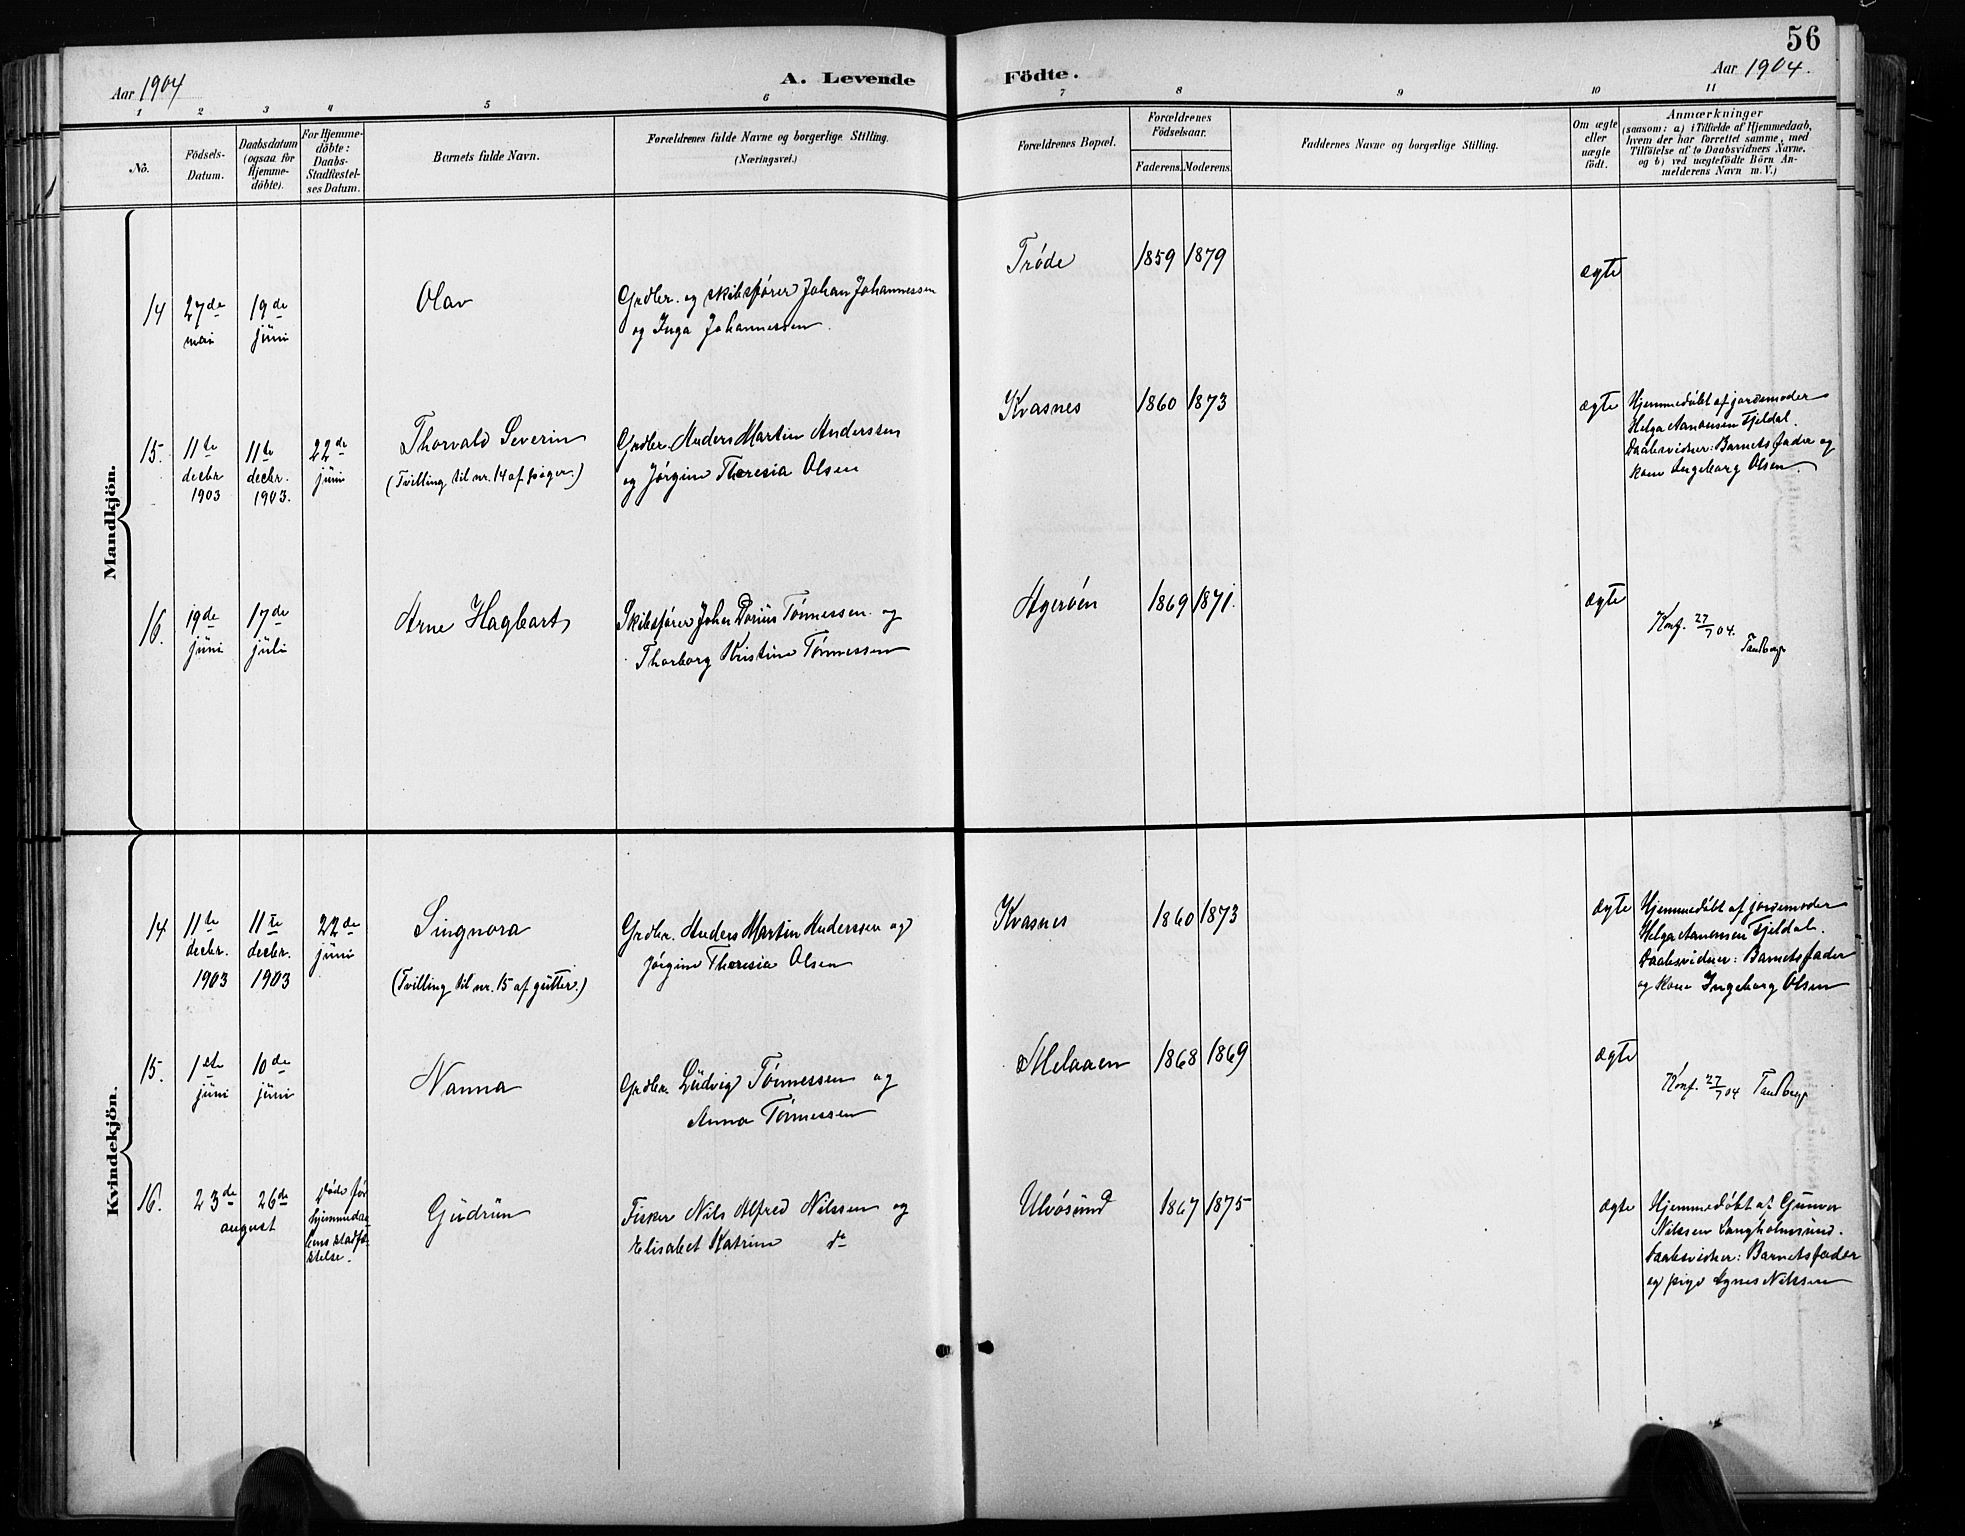 56
Aar 1904
A. Levende
Födte.
Aar 1904.
1 2 3 4 5 6 7 8 9 10 11
No.
Födsels-
Datum.
Daabsdatum
(ogsaa for
Hjemme-
döbte).
For Hjemme-
döbte:
Daabs-
Stadfæstel-
ses Datum.
Barnets fulde Navn.
Forældrenes fulde Navne og borgerlige Stilling.
(Næringsvei.)
Forældrenes Bopæl.
Forældrenes
Födselsaar.
Faderens. Moderens.
Faddernes Navne og borgerlige Stilling.
Om ægte
eller
uægte
födt.
Anmærkninger
(saasom: a) i Tilfælde af Hjemmedaab,
hvem der har forrettet samme, med
Tilföielse af to Daabsvidners Navne,
og b) ved uægtefödte Börn An-
melderens Navn m. V.)
Mandkjön.
14 27de mai
19de juni
Olav
Grdbr. og skibsfører Johan Johannessen
og Inga Johannessen.
Trøde
1859 1879
ægte
15. 11te decbr. 1903
11te decbr. 1903.
22de juni
Thorvald Severin
(Tvilling til nr. 14 af piger.)
Grdbr. Anders Martin Anderssen
og Jørgine Theresia Olsen
Kvasnes
1860 1873
ægte
Hjemmedøbt af jordemoder
Helga Aanensen Fjeldal.
Daabsvidner: Barnets fader og
kone Ingeborg Olsen.
16. 19de juni
17de juli
Arne Hagbart
Skibsfører Johan Dorius Tønnessen og
Thorborg Kristine Tønnessen
Agerøen
1869 1871.
ægte
Konf. 27/7 04.
Tandberg
Kvindekjön.
14 11te decbr. 1903
11te decbr. 1903
22de juni
Singnora
(Tvilling til nr. 15 af gutter.)
Grdbr. Anders Martin Anderssen og
Jørgine Theresia Olsen
Kvasnes
1860 1873
ægte
Hjemmedøbt af jordemoder
Helga Aanensen Fjeldal.
Daabsvidner: Barnets fader
og kone Ingeborg Olsen
15. 1ste juni
10de juni
Nanna
Grdbr. Ludvig Tønnessen og
Anna Tønnessen
Melaaen
1868 1869
ægte
Konf. 27/7 04 Tandberg
16. 23de 26de
august
døde før
hjemmedaa-
bens stadfæ-
stelse.
Gudrun
Fisker Nils Alfred Nilssen og
Elisabet Katrine do
Ulvøsund
1867 1875
ægte
Hjemmedøbt af Gunvor
Nilssen Langholmsund.
Daabsvidner: Barnets fader
og pige Agnes Nilssen